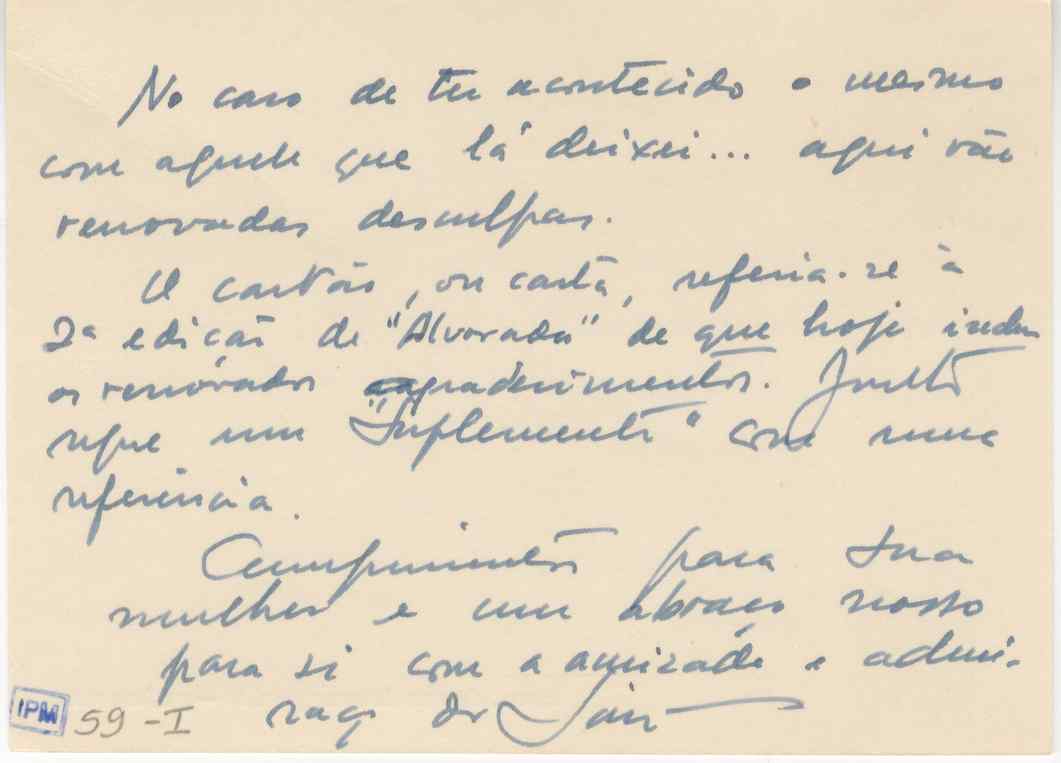 No caso de ter acontecido o mesmo
com aquele que lá deixei... aqui vão
renovadas desculpas.
O cartão, ou carta, referia-se à
2ª edição de "Alvorada" de que hoje
os renovados agradecimentos. Junto
segue um "Suplemento" com uma
referência.
Cumprimentos para sua
mulher e um abraço nosso
para si com a amizade e admi-
raçã do
IPM 59-I